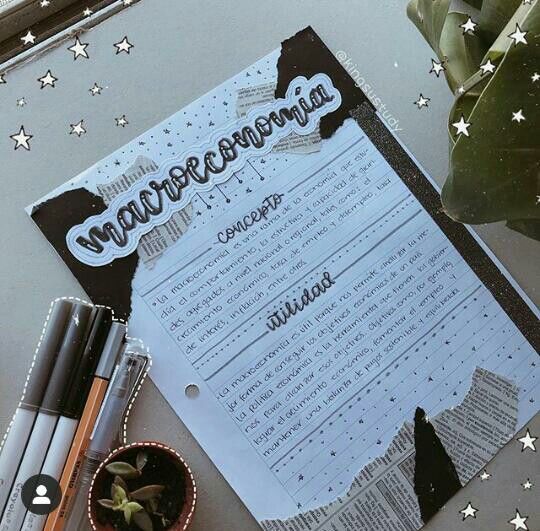 @kingsustudy
macroeconomía
concepto
• La macroeconomía es una rama de la economía que estu
dia el comportamiento, la estructura y capacidad de gran
des agregados a nivel nacional o regional, tales como: el
crecimiento económico, tasa de empleo y desempleo, tasa
de interés, inflación, entre otros.
utilidad
La macroeconomía es útil porque nos permite analizar la me
jor forma de conseguir los objetivos económicos de un país.
La política económica es la herramienta que tienen los gobier
nos para alcanzar esos objetivos. Objetivos como, por ejemplo,
lograr el crecimiento económico, fomentar el empleo y
mantener una balanza de pagos solvente y equilibrada.